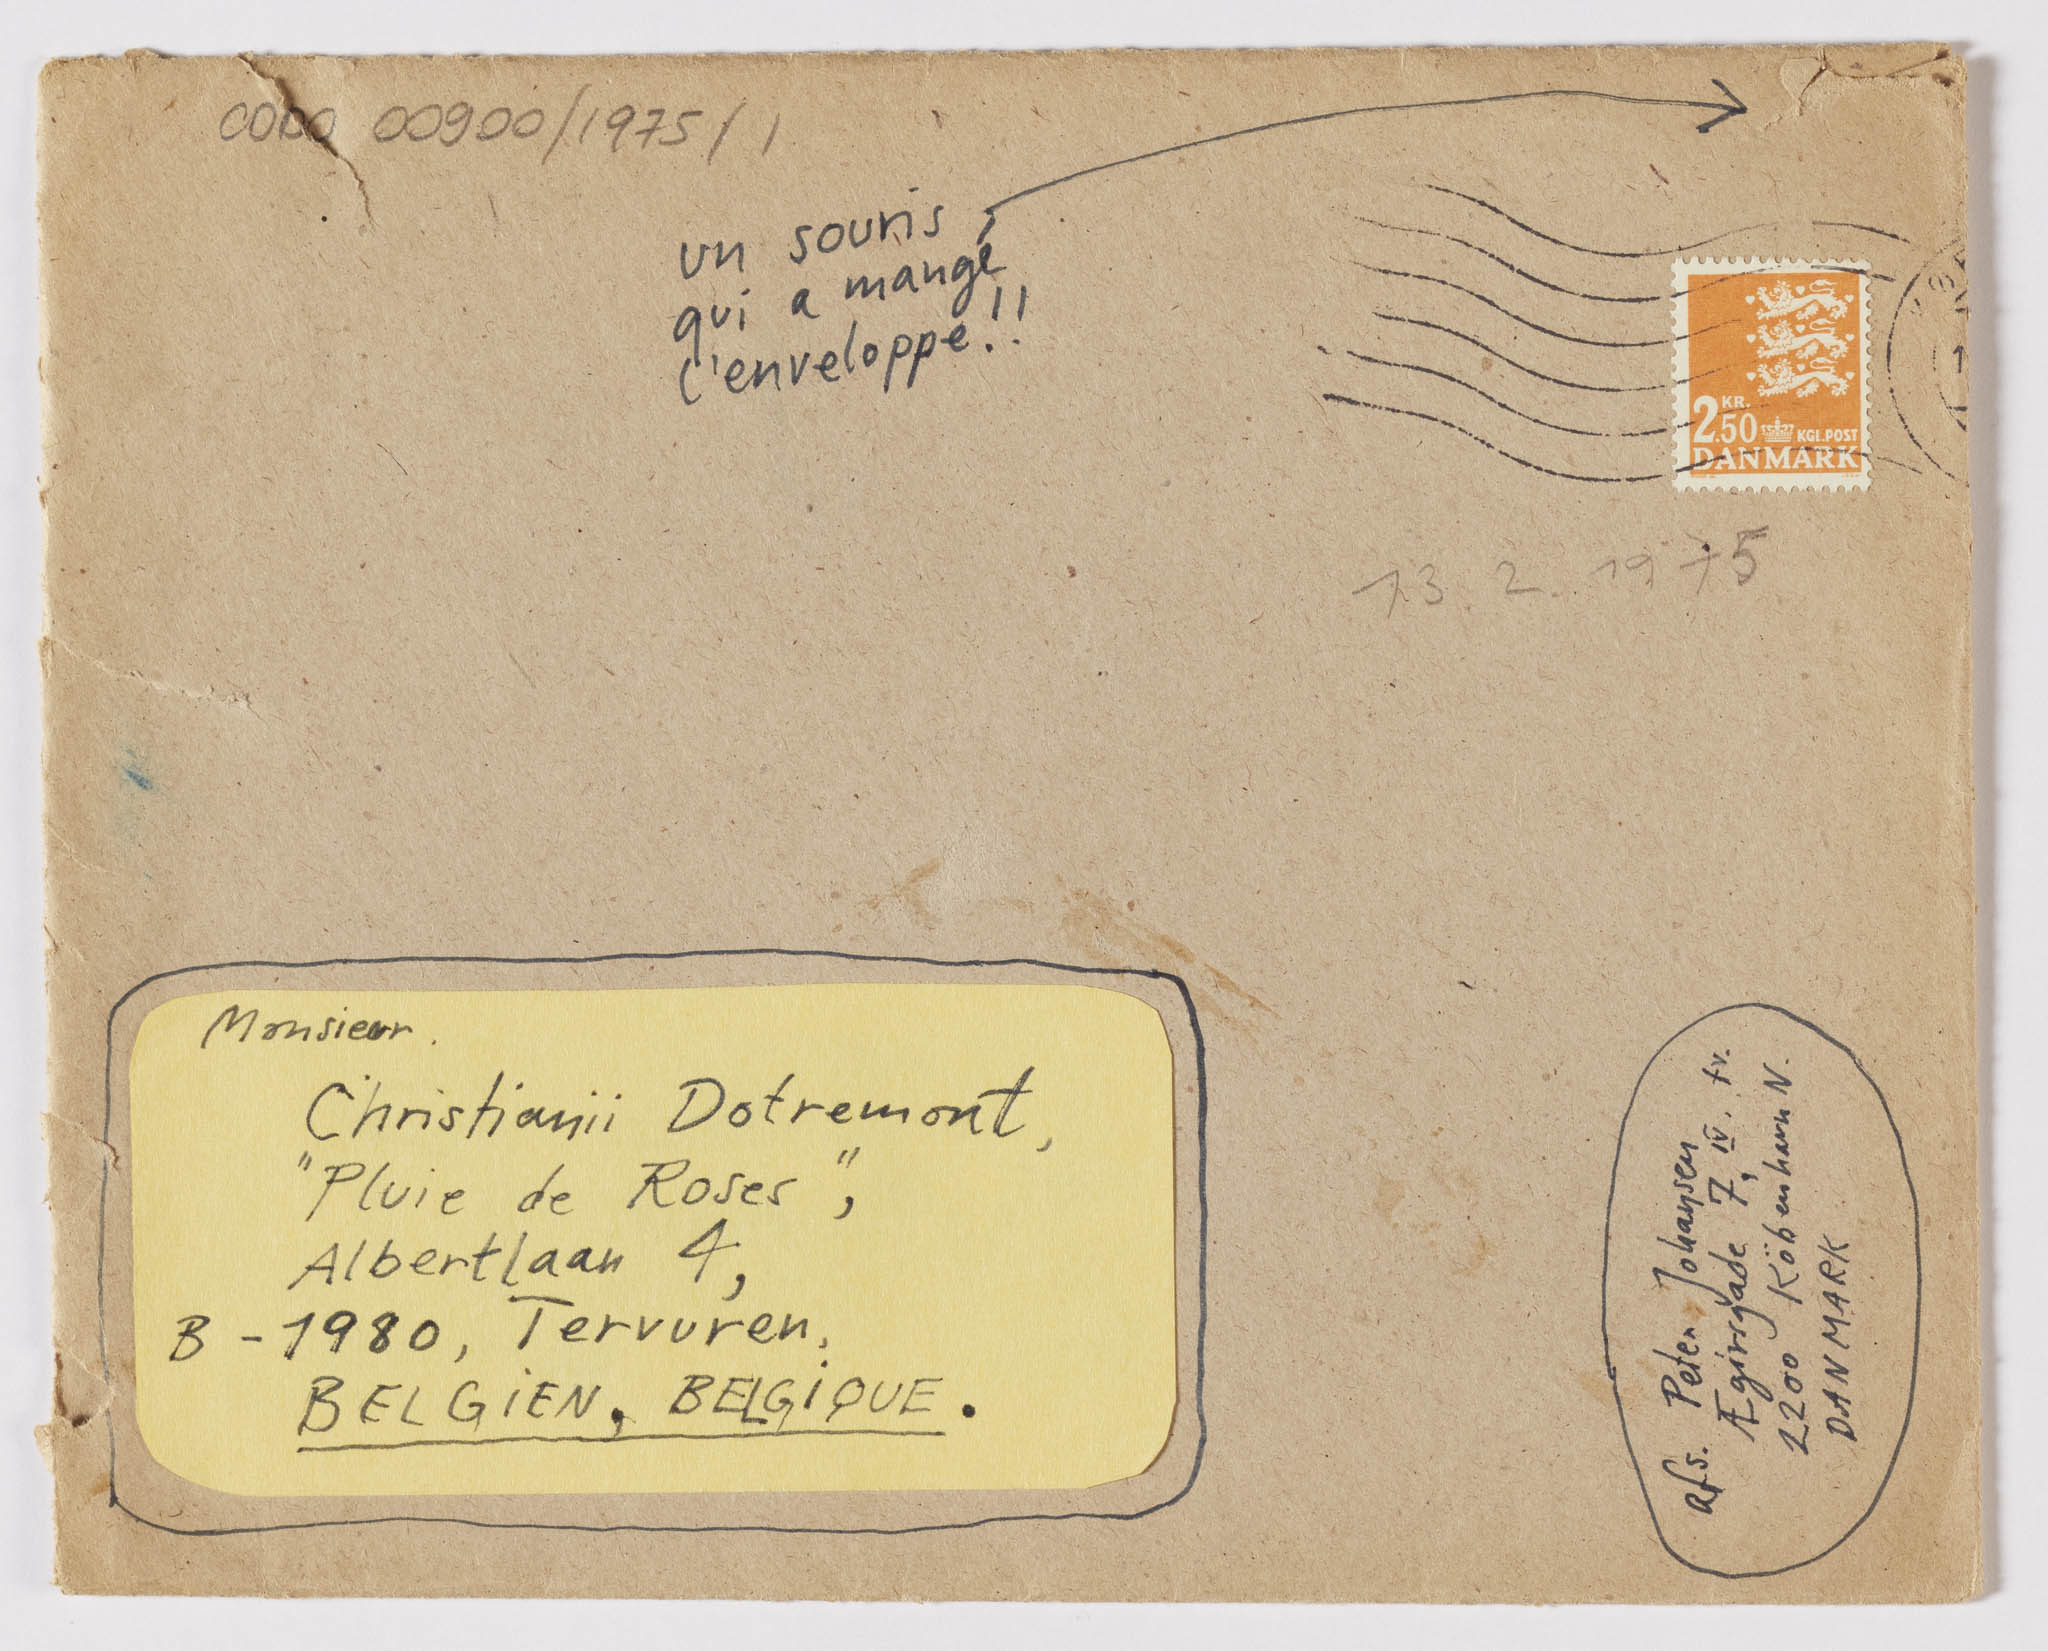 CODO 00900/1975/1
un souris,
qui a mangé
l'enveloppe!!
KR.
2.50 KGL.POST
DANMARK
13.2.1975
Monsieur.
Christianii Dotremont,
"Pluie de Roses",
Albertlaan 4,
B-1980, Tervuren.
BELGIEN, BELGIQUE.
afs. Peter Johansen
Ægirsgade 7, IV. tv.
2200 Köbenhavn N.
DANMARK